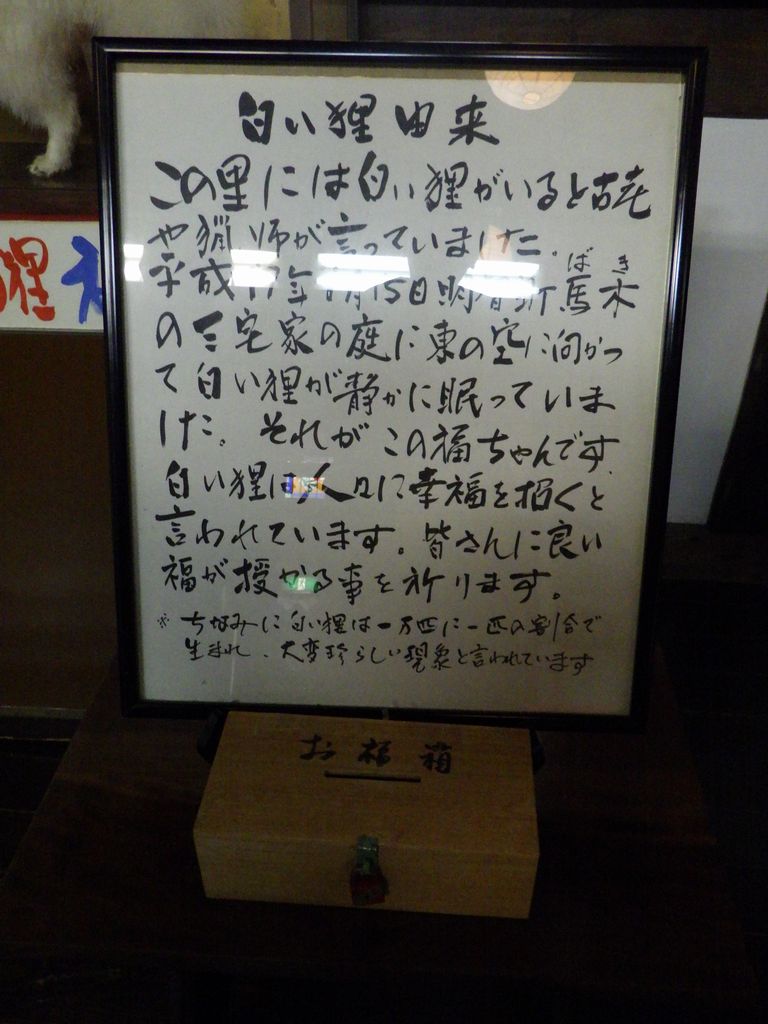 白い狸由来
この里には白い狸がいると古老
や猟師が言っていました。
平成17年 月15日 馬木
ばき
の三宅家の庭に東の空に向かっ
て白い狸が静かに眠っていま
した。それがこの福ちゃんです
白い狸は人々に幸福を招くと
言われています。皆さんに良い
福が授かる事を祈ります。
※ちなみに白い狸は一万匹に一匹の割合で
生まれ、大変珍らしい現象と言われています
お福箱
狸